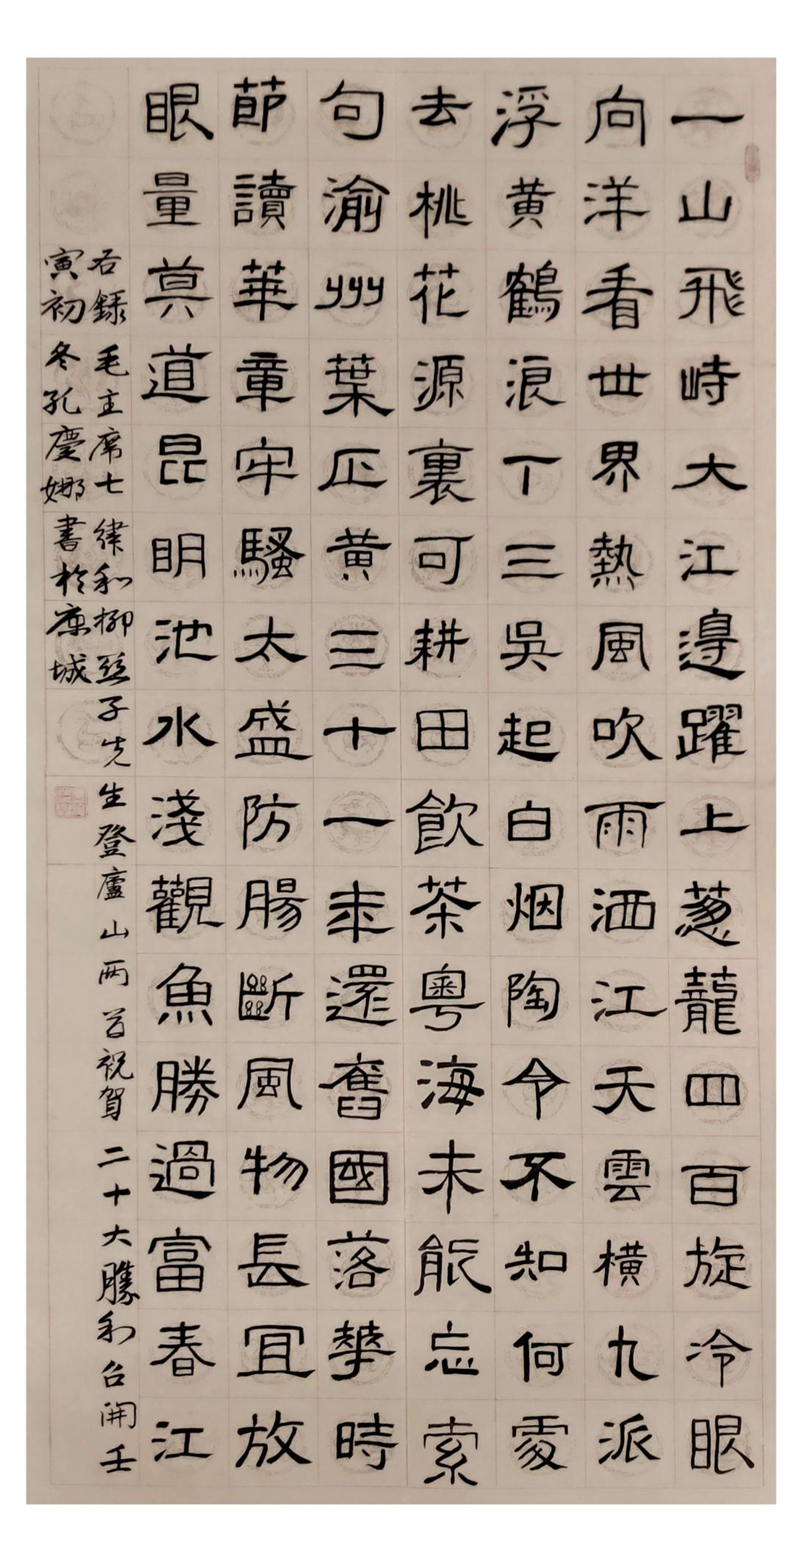 一山飛峙大江邊躍上葱蘢四百旋冷眼
向洋看世界熱風吹雨洒江天雲橫九派
浮黃鶴浪下三吳起白烟陶令不知何處
去桃花源裏可耕田飲茶粵海未能忘索
句渝州葉正黃三十一年還舊國落華時
節讀華章牢騷太盛防腸斷風物長宜放
眼量莫道昆明池水淺觀魚勝過富春江
右錄毛主席七律和柳亞子先生登廬山兩首祝賀二十大勝利召開壬
寅初冬孔慶娜書於康城